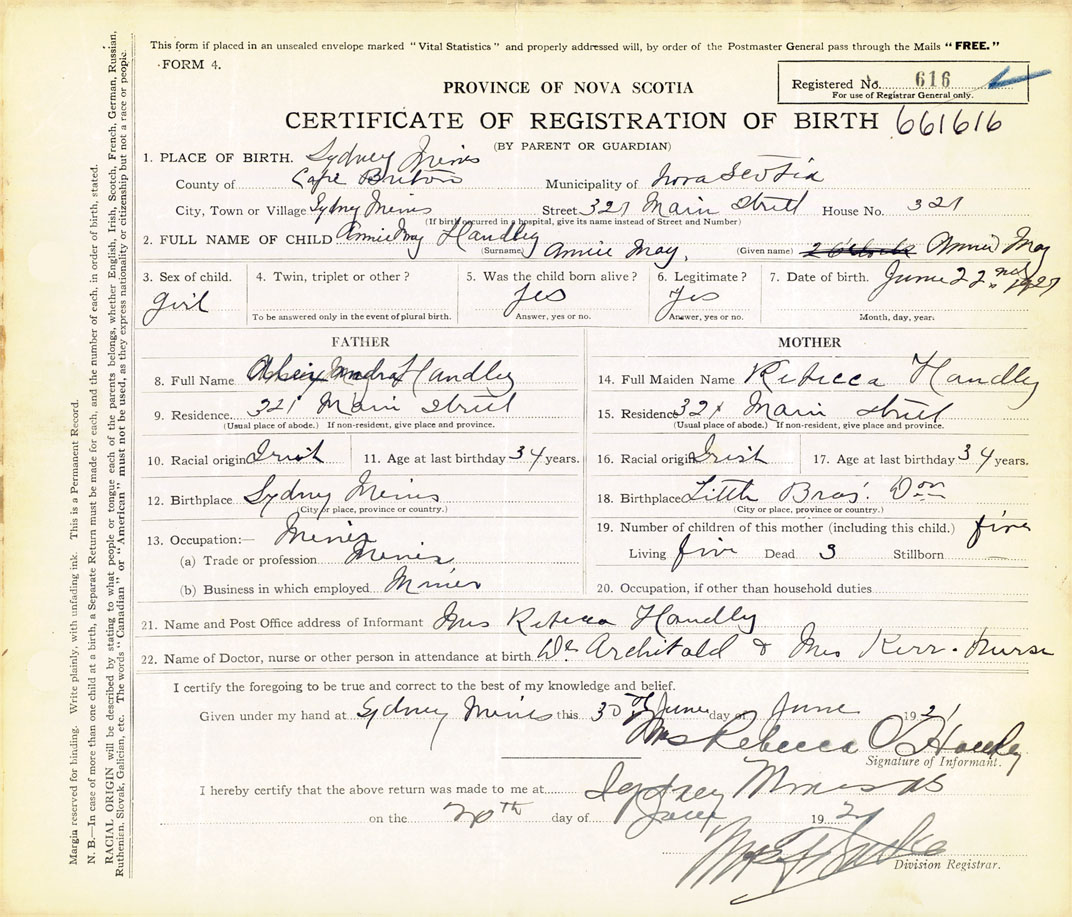 This form if placed in an unsealed envelope marked "Vital Statistics" and properly addressed will, by order of the Postmaster General pass through the Mails "FREE."
FORM 4.
Registered No. 616
For use of Registrar General only.
PROVINCE OF NOVA SCOTIA
CERTIFICATE OF REGISTRATION OF BIRTH 661616
(BY PARENT OR GUARDIAN)
1. PLACE OF BIRTH. Sydney Mines
County of Cape Briton Municipality of Nova Scotia
City, Town or Village Sydney Mines Street 321 Main Street House No. 321
(If birth occurred in a hospital, give its name instead of Street and Number)
2. FULL NAME OF CHILD Annie May Handley (Surname) Annie May, (Given name) Annie May
3. Sex of child. 4. Twin, triplet or other? 5. Was the child born alive? 6. Legitimate? 7. Date of birth. June 22nd 1921
girl yes yes
To be answered only in the event of plural birth. Answer, yes or no. Answer, yes or no. Month, day, year.
FATHER
8. Full Name Handley
9. Residence 321 Main Street
(Usual place of abode.) If non-resident, give place and province.
10. Racial origin Irish 11. Age at last birthday 34 years.
12. Birthplace Sydney Mines
(City or place, province or country.)
13. Occupation:— Miner
(a) Trade or profession Miner
(b) Business in which employed Miner
MOTHER
14. Full Maiden Name Rebecca Handley
15. Residence 321 Main Street
(Usual place of abode.) If non-resident, give place and province.
16. Racial origin Irish 17. Age at last birthday 34 years.
18. Birthplace Little Bras. Don
(City or place, province or country.)
19. Number of children of this mother (including this child.) five
Living five Dead 3 Stillborn
20. Occupation, if other than household duties
21. Name and Post Office address of Informant Mrs Rebecca Handley
22. Name of Doctor, nurse or other person in attendance at birth Dr Archibald & Mrs Kerr. Nurse
I certify the foregoing to be true and correct to the best of my knowledge and belief.
Given under my hand at Sydney Mines this 30th June day of June 1921
Mrs Rebecca O'Handley
Signature of Informant.
I hereby certify that the above return was made to me at Sydney Mines
on the day of June 1921
Division Registrar.
Margin reserved for binding. Write plainly, with unfading ink. This is a Permanent Record.
N. B.—In case of more than one child at a birth, a Separate Return must be made for each, and the number of each, in order of birth, stated.
RACIAL ORIGIN will be described by stating to what people or tongue each of the parents belongs, whether English, Irish, Scotch, French, German, Russian,
Ruthenian, Slovak, Galician, etc. The words "Canadian" or "American" must not be used, as they express nationality or citizenship but not a race or people.